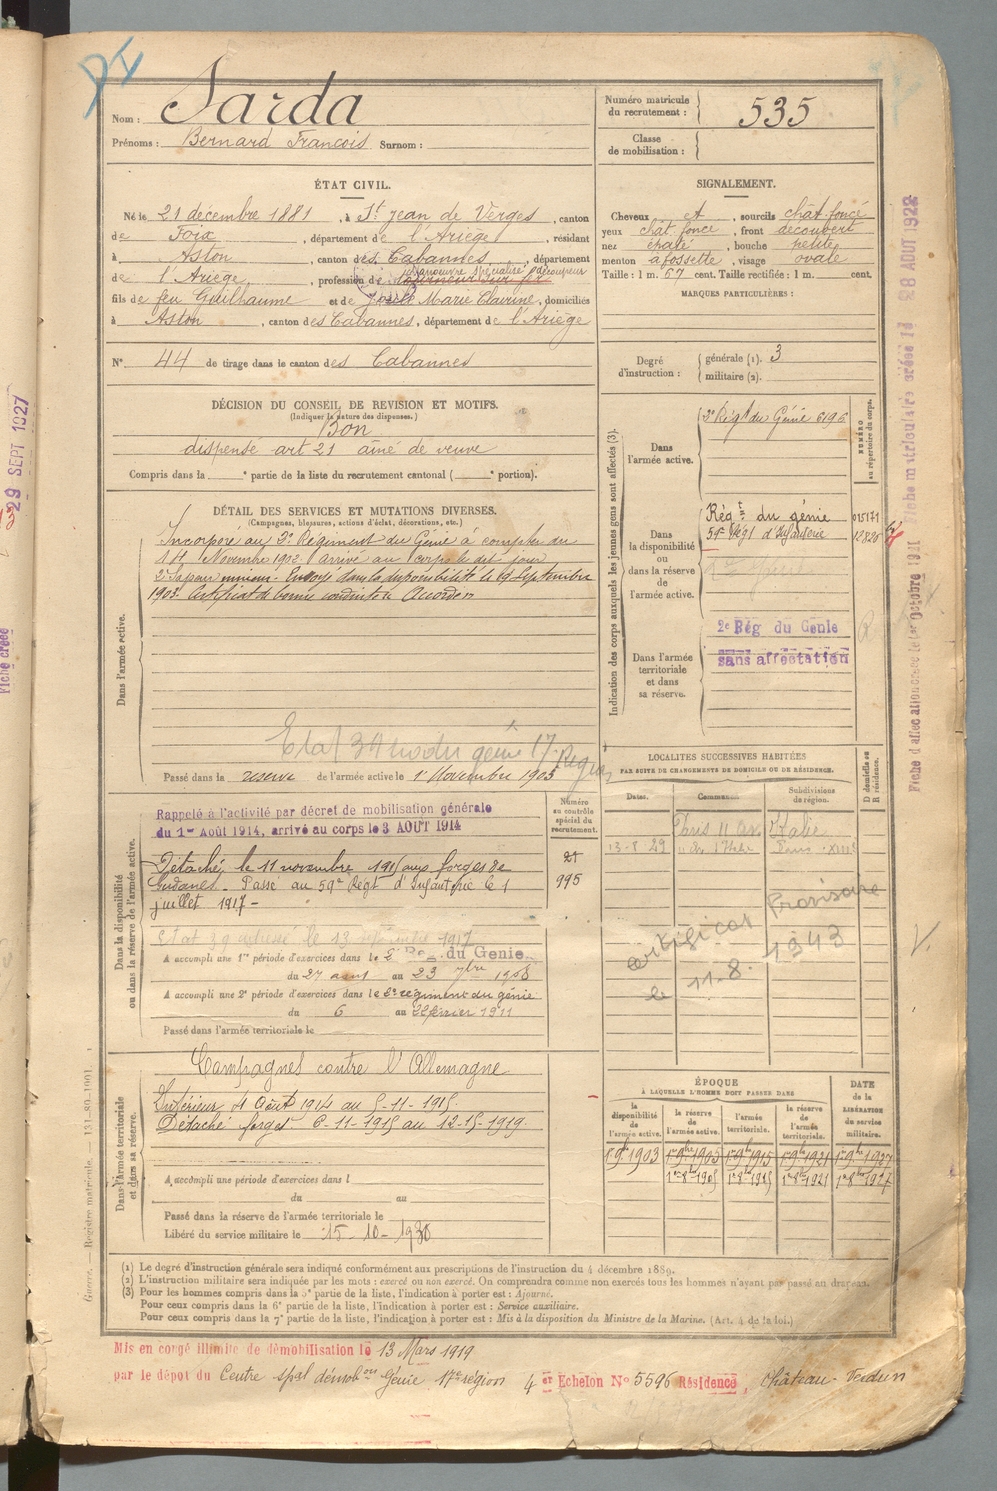 Nom : Sarda
Prénoms : Bernard François Surnom :
Numéro matricule
du recrutement : 535
Classe
de mobilisation :
ÉTAT CIVIL.
Né le 21 décembre 1881, à St Jean de Verges, canton
de Foix, département de l'Ariège, résidant
à Aston, canton des Cabannes, département
manœuvre spécialisé découpeur
de l'Ariège, profession de tourneur sur fer
fils de feu Guilhaume et de Marie Clavrine, domiciliés
à Aston, canton des Cabannes, département de l'Ariège
N° 44 de tirage dans le canton des Cabannes
SIGNALEMENT.
Cheveux et, sourcils chat-foncé
yeux chat. foncé, front découvert
nez épaté, bouche petite
menton à fossette, visage ovale
Taille : 1 m. 67 cent. Taille rectifiée : 1 m. cent.
MARQUES PARTICULIÈRES :
Degré
d'instruction :
générale (1). 3
militaire (2).
DÉCISION DU CONSEIL DE REVISION ET MOTIFS.
(Indiquer la nature des dispenses.)
Bon
dispensé art 21 aîné de veuve
Compris dans la e partie de la liste du recrutement cantonal ( e portion).
DÉTAIL DES SERVICES ET MUTATIONS DIVERSES.
(Campagnes, blessures, actions d'éclat, décorations, etc.)
Dans l'armée active.
Incorporé au 2e Régiment du Génie à compter du
14 Novembre 1902 arrivé au corps le dit jour
2e sapeur mineur. Envoyé dans la disponibilité le 19 Septembre
1903. Certificat de bonne conduite Accordé
Etat 39 du génie 17e Région
Passé dans la réserve de l'armée active le 1 Novembre 1905
Indication des corps auxquels les jeunes gens sont affectés (3).
NUMÉRO
au répertoire du corps.
Dans
l'armée active.
2e Régt du Génie 6196
Dans
la disponibilité
ou
dans la réserve
de
l'armée active.
Régt du génie 015171
59e Régt d'Infanterie 12820
Dans l'armée
territoriale
et dans
sa réserve.
2e Rég du Génie
sans affectation
Dans la disponibilité
ou dans la réserve de l'armée active.
Numéro
au contrôle
spécial du
recrutement.
21
995
Rappelé à l'activité par décret de mobilisation générale
du 1er Août 1914, arrivé au corps le 3 AOUT 1914
Détaché le 11 novembre 1915 aux forges de
Gudanes - Passé au 59e Régt d'Infanterie le 1
juillet 1917 -
Etat 39 adressé le 13 1917
A accompli une 1re période d'exercices dans le 2e Reg. du Genie
du 27 août au 23 7bre 1908
A accompli une 2e période d'exercices dans le 2e régiment du génie
du 6 au 22 février 1911
Passé dans l'armée territoriale le
LOCALITES SUCCESSIVES HABITÉES
PAR SUITE DE CHANGEMENTS DE DOMICILE OU DE RÉSIDENCE.
Dates. Communes. Subdivisions
de région.
D domicile ou
R résidence.
Paris 11
13-8-29
Provisoire
le 11-8. 1943
Dans l'armée territoriale
et dans sa réserve.
Campagnes contre l'Allemagne
Intérieur 4 Août 1914 au 5-11-1915
Détaché forges 6-11-1915 au 12-15-1919
A accompli une période d'exercices dans l
du au
Passé dans la réserve de l'armée territoriale le
Libéré du service militaire le 15-10-1930
ÉPOQUE
À LAQUELLE L'HOMME DOIT PASSER DANS
DATE
de la
LIBÉRATION
du service
militaire.
la
disponibilité
de
l'armée active.
la réserve
de
l'armée active.
l'armée
territoriale.
la réserve
de
l'armée
territoriale.
1er 9bre 1903 1er 9bre 1905 1er 9bre 1915 1er 9bre 1921 1er 9bre 1927
1er 8bre 1905 1er 8bre 1915 1er 8bre 1921 1er 8bre 1927
(1) Le degré d'instruction générale sera indiqué conformément aux prescriptions de l'instruction du 4 décembre 1889.
(2) L'instruction militaire sera indiquée par les mots : exercé ou non exercé. On comprendra comme non exercés tous les hommes n'ayant pas passé au drapeau.
(3) Pour les hommes compris dans la 5e partie de la liste, l'indication à porter est : Ajourné.
Pour ceux compris dans la 6e partie de la liste, l'indication à porter est : Service auxiliaire.
Pour ceux compris dans la 7e partie de la liste, l'indication à porter est : Mis à la disposition du Ministre de la Marine. (Art. 4 de la loi.)
Mis en congé illimité de démobilisation le 13 Mars 1919
par le dépôt du Centre spal démobon Génie 17e région 4er Echelon N° 5596 Résidence, Château-Verdun
Guerre. — Registre matricule. 131-80-1901.
29 SEPT 1927
Fiche créée
28 AOUT 1922
Fiche matriculaire créée le
Fiche d'affectation créée le 1er octobre 1921